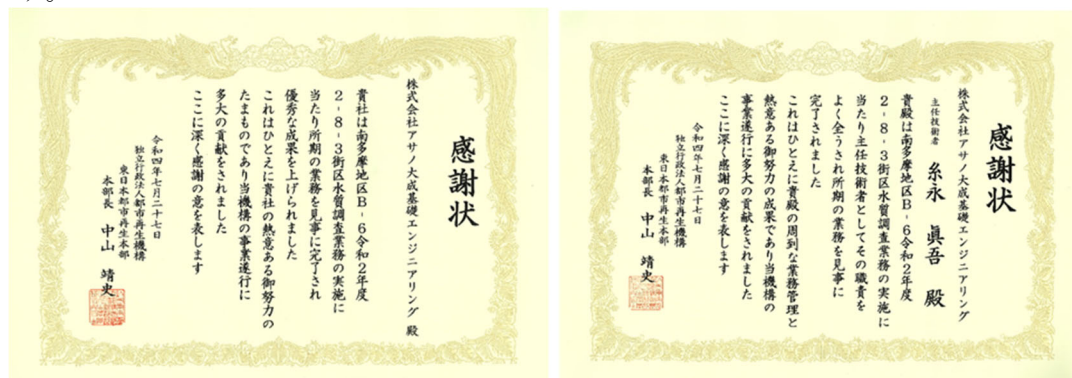 感謝状
株式会社アサノ大成基礎エンジニアリング 殿
貴社は南多摩地区B-6令和2年度
2-8-3街区水質調査業務の実施に
当たり所期の業務を見事に完了され
優秀な成果を上げられました
これはひとえに貴社の熱意ある御努力の
たまものであり当機構の事業遂行に
多大の貢献をされました
ここに深く感謝の意を表します
令和四年七月二十七日
独立行政法人都市再生機構
東日本都市再生本部
本部長 中山 靖史
感謝状
株式会社アサノ大成基礎エンジニアリング
主任技術者 糸永 眞吾 殿
貴殿は南多摩地区B-6令和2年度
2-8-3街区水質調査業務の実施に
当たり主任技術者としてその職責を
よく全うされ所期の業務を見事に
完了されました
これはひとえに貴殿の周到な業務管理と
熱意ある御努力の成果であり当機構の
事業遂行に多大の貢献をされました
ここに深く感謝の意を表します
令和四年七月二十七日
独立行政法人都市再生機構
東日本都市再生本部
本部長 中山 靖史